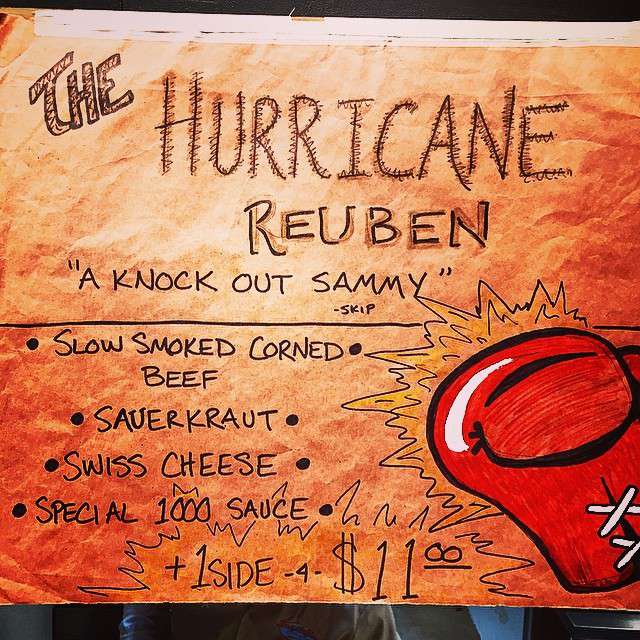 THE HURRICANE
REUBEN
"A KNOCK OUT SAMMY"
-SKIP
• SLOW SMOKED CORNED •
BEEF
• SAUERKRAUT •
• SWISS CHEESE •
• SPECIAL 1000 SAUCE •
+1SIDE -4- $11.00